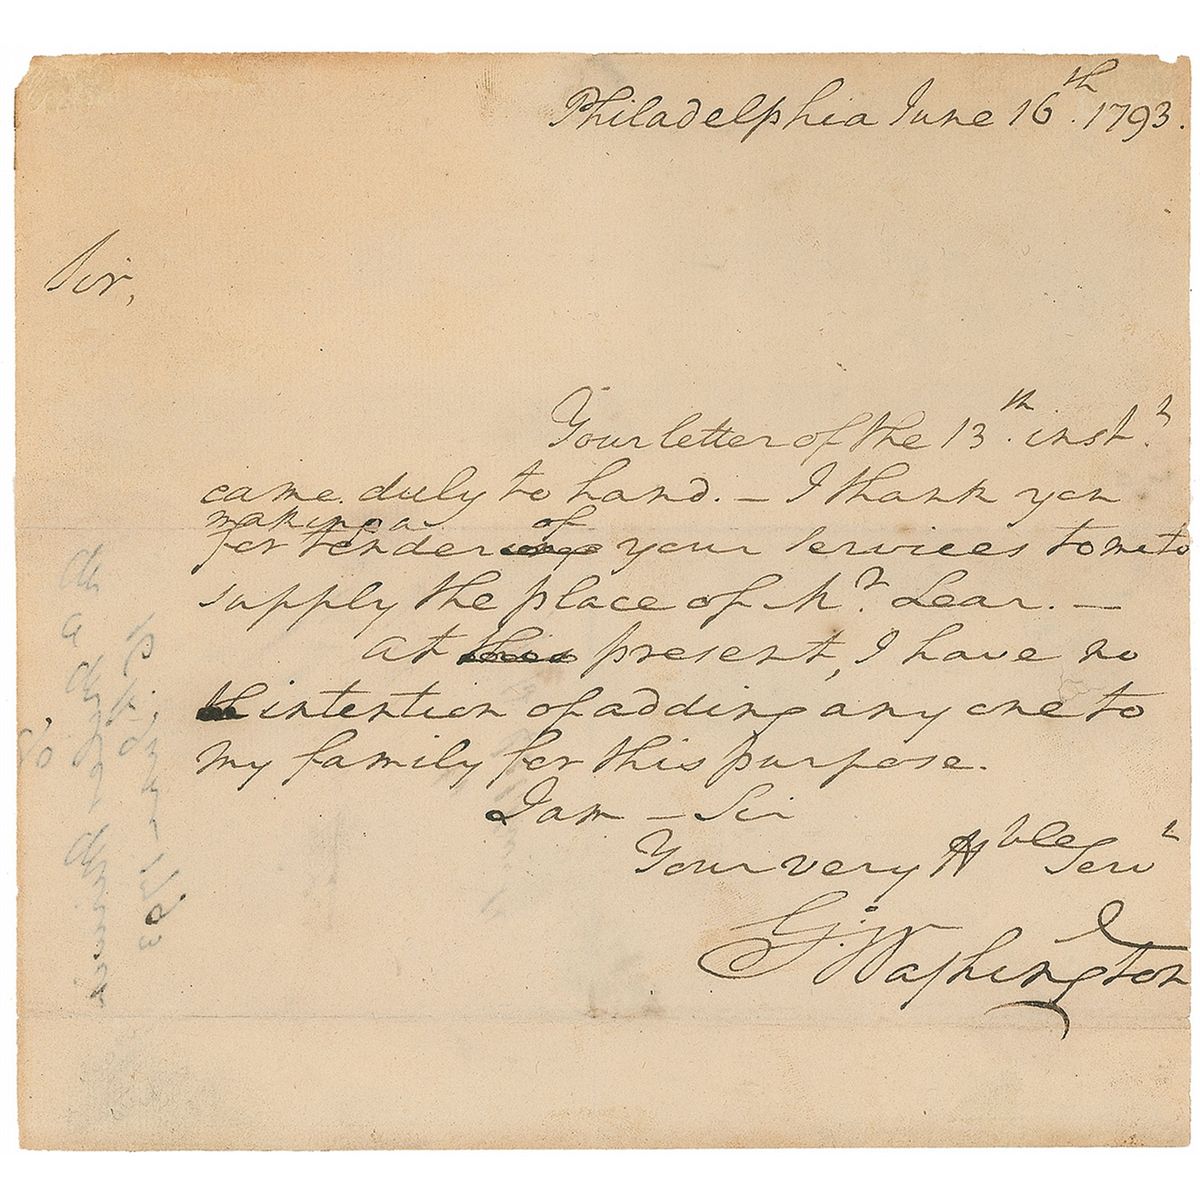 Philadelphia June 16th. 1793.
Sir,
Your letter of the 13th. inst.t
came duly to hand. – I thank you
making a of
for tender your services to me to
supply the place of Mr. Lear. –
At this present, I have no
intention of adding any one to
my family for this purpose.
I am – Sir
Your very Hble Servt
G:Washington